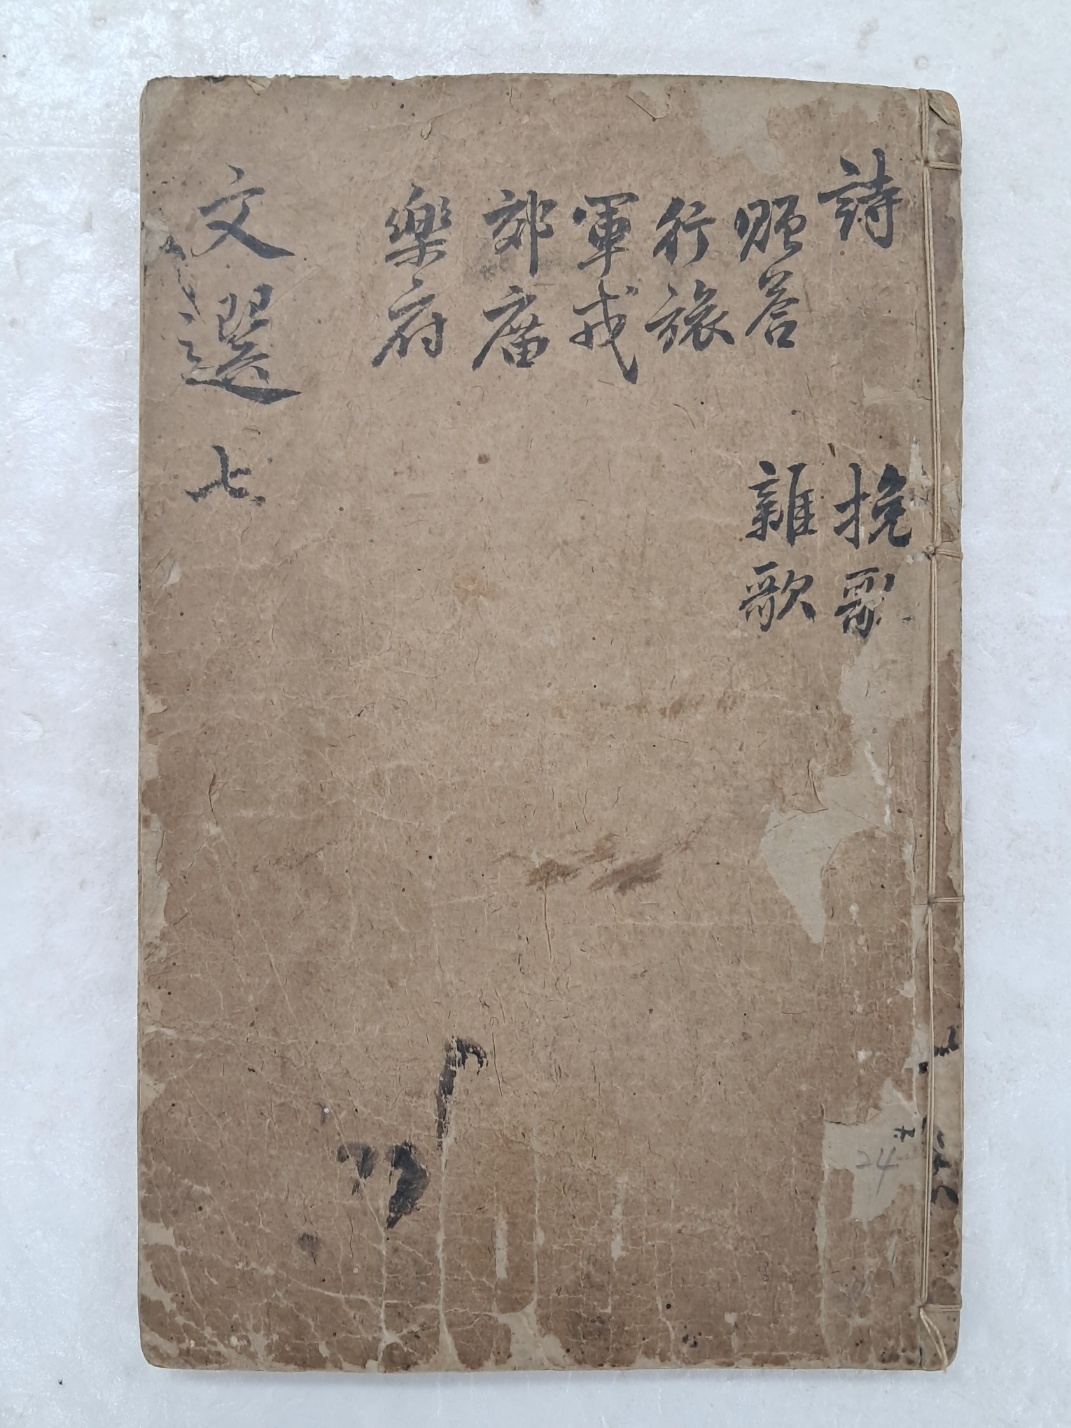 詩
贈荅
行旅
軍戎
郊廟
樂府
挽歌
雜歌
文選 七
24